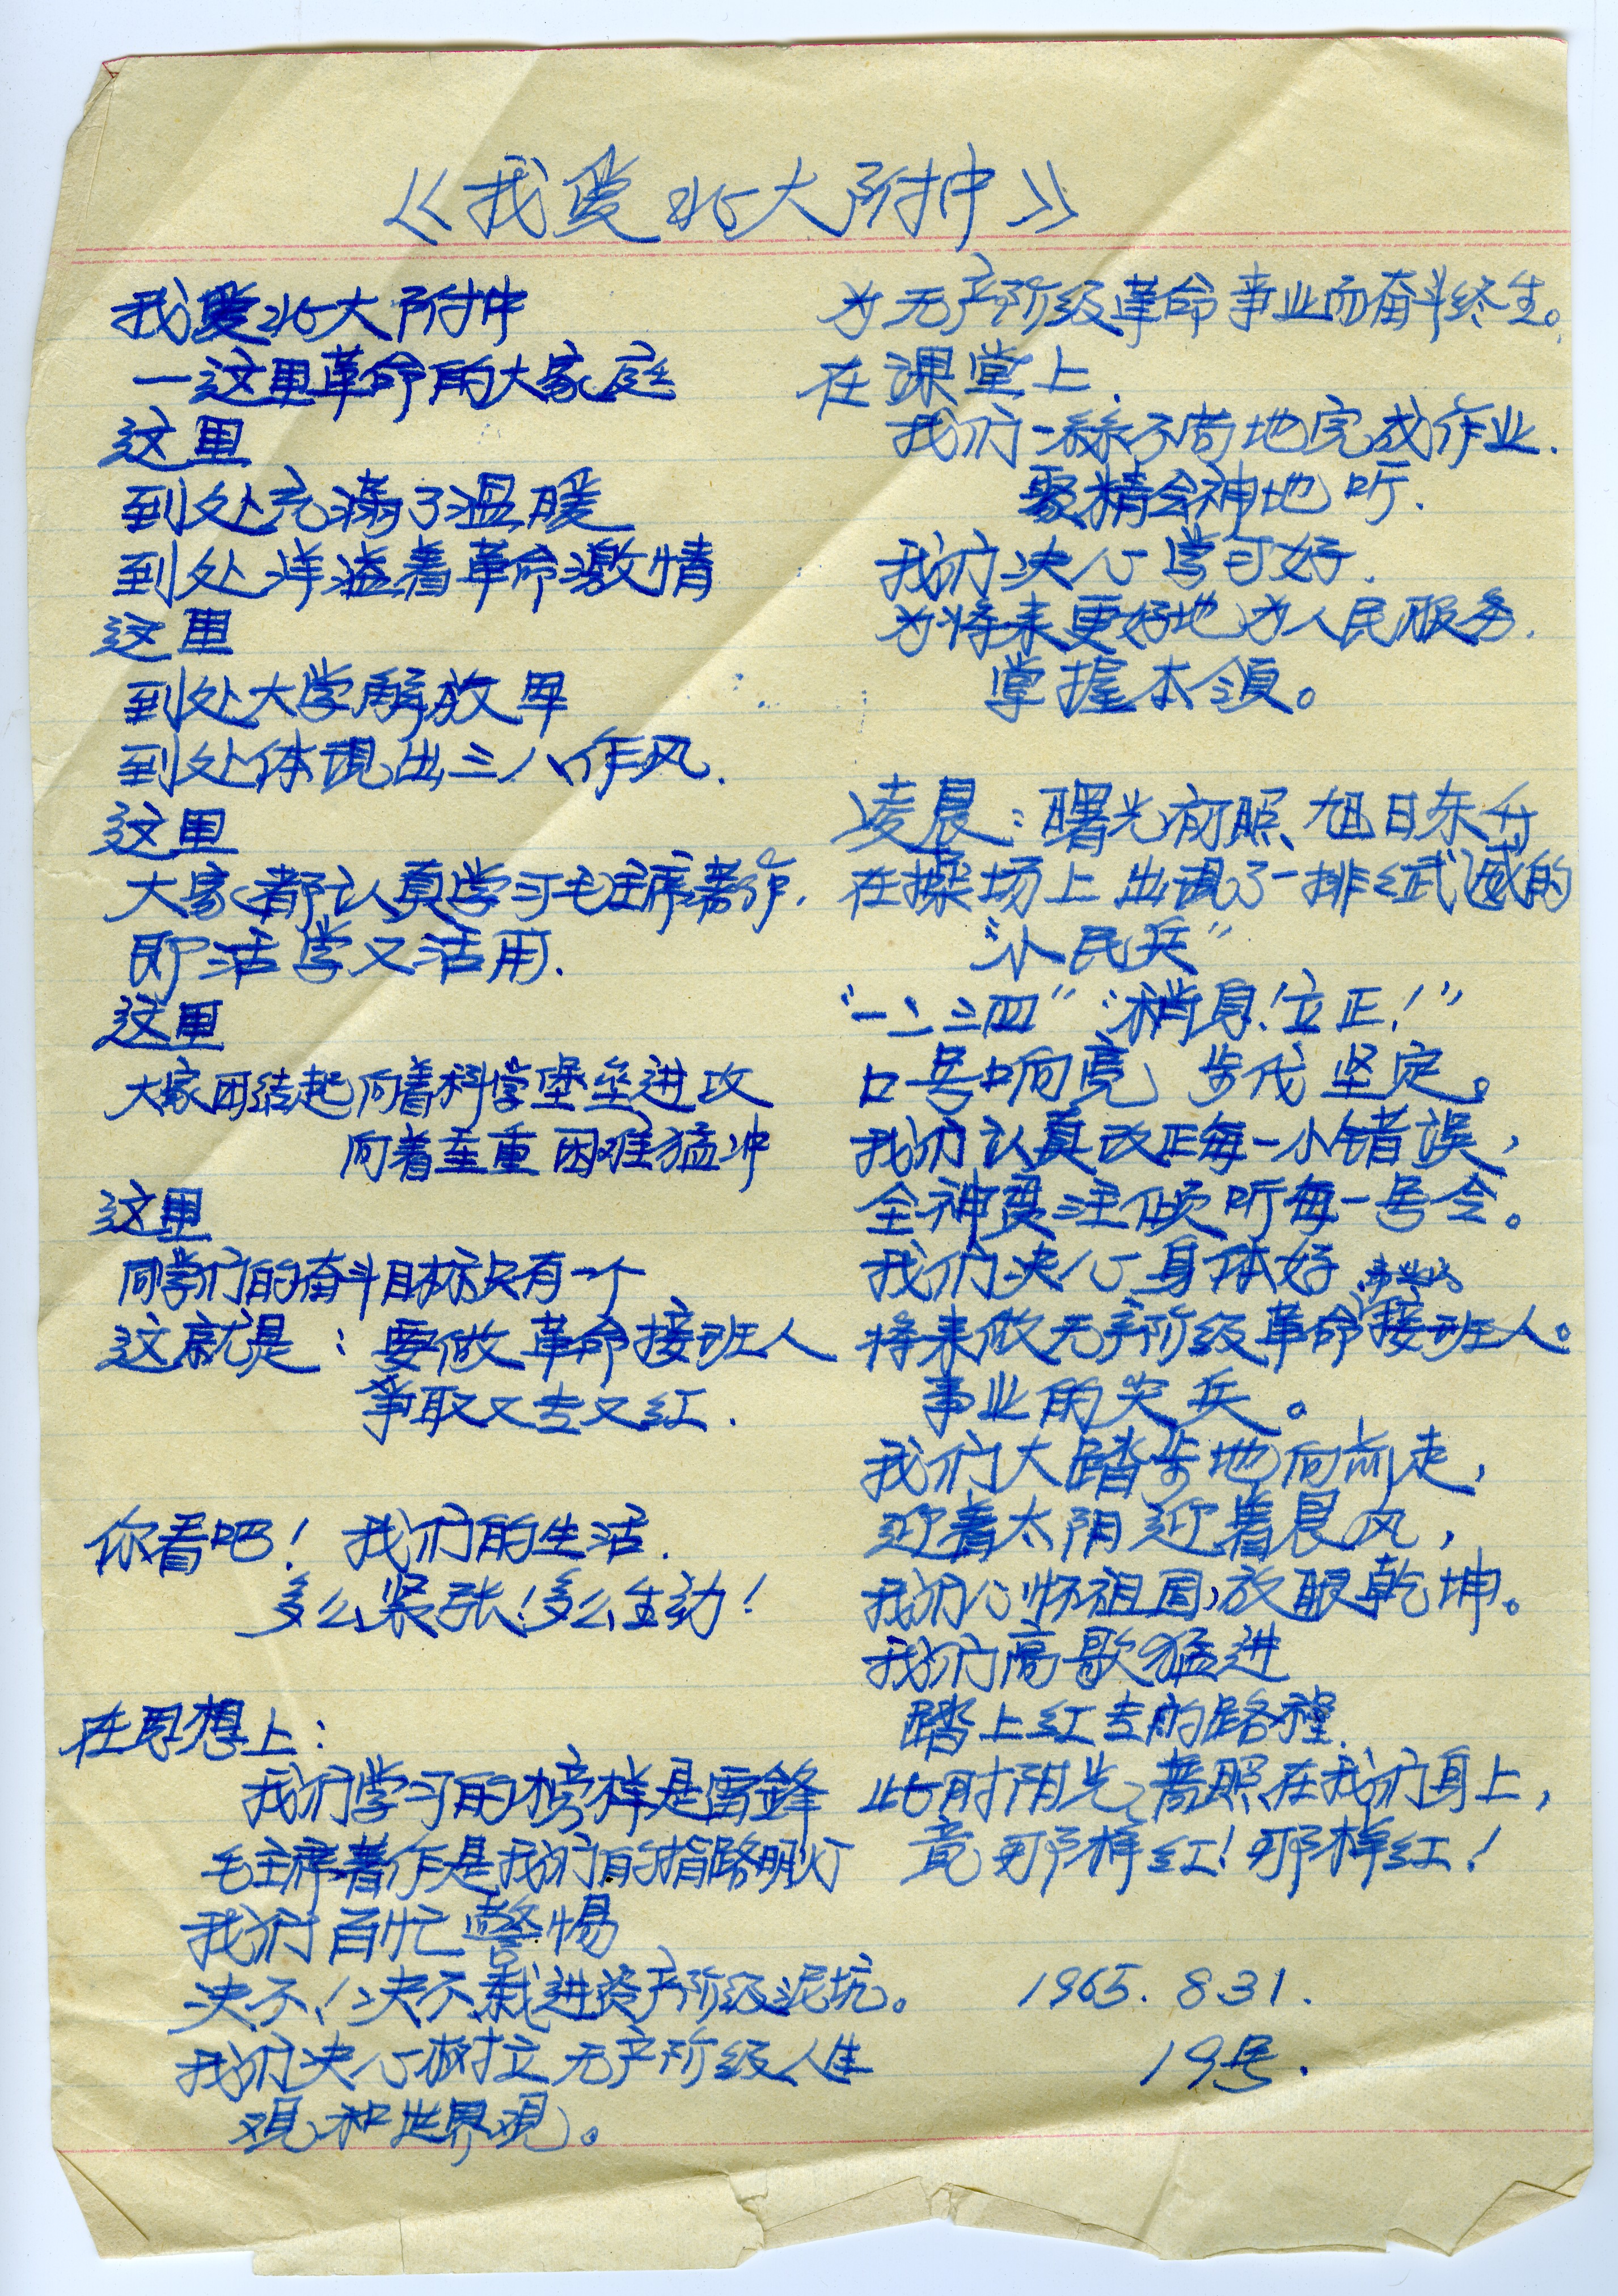 《我爱北大附中》
我爱北大附中
—这里革命的大家庭
这里
到处充满了温暖
到处洋溢着革命激情
这里
到处大学解放军
到处体现出三八作风.
这里
大家都认真学习毛主席著作.
即活学又活用.
这里
大家团结起向着科学堡垒进攻
向着重重困难猛冲
这里
同学们的奋斗目标只有一个
这就是：要做革命接班人
争取又专又红.
你看吧！我们的生活.
多么紧张！多么生动！
在思想上：
我们学习的榜样是雷鋒
毛主席著作是我们的指路明灯
我们百忙警惕
决不！决不栽进资产阶级泥坑。
我们决心树立无产阶级人生
观和世界观。
为无产阶级革命事业而奋斗终生。
在课堂上.
我们一丝不苟地完成作业.
聚精会神地听.
我们决心学习好.
为将来更好地为人民服务.
掌握本领。
凌晨：曙光初照、旭日东升
在操场上出现了一排红武威的
“小民兵”
“一二三四”“稍息！立正！”
口号响亮 步伐坚定。
我们认真改正每一小错误，
全神贯注倾听每一号令。
我们决心身体好.
事业的
将来做无产阶级革命接班人。
事业的尖兵。
我们大踏步地向前走，
迎着太阳迎着晨风，
我们心怀祖国，放眼乾坤。
我们高歌猛进
踏上红专的路程.
此时阳光普照在我们身上，
竟那样红！那样红！
1965. 8 31.
19号.